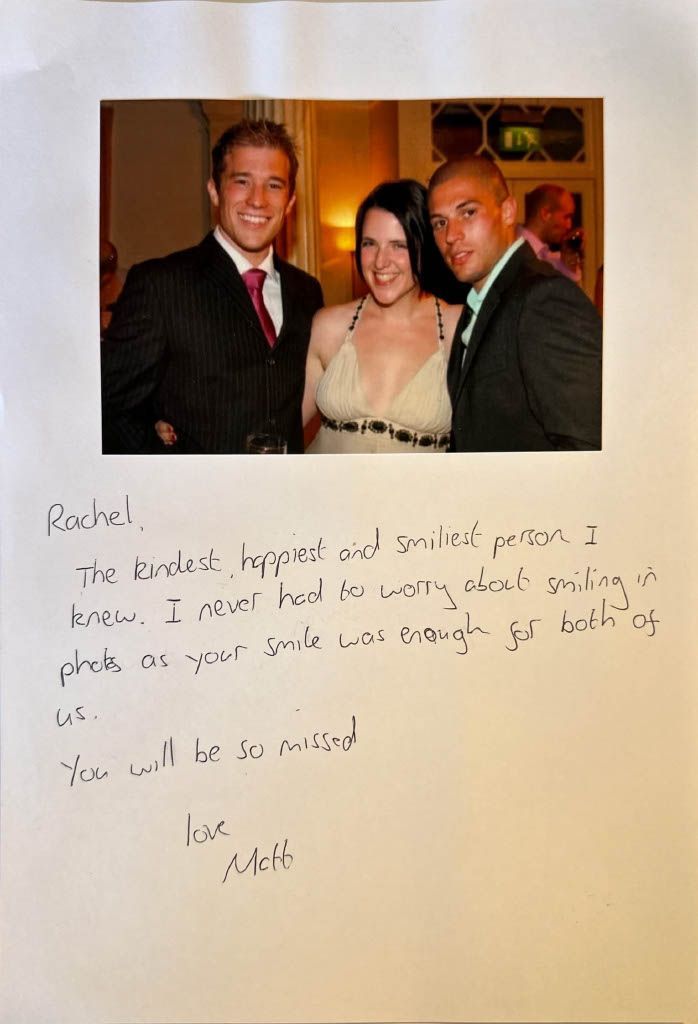 Rachel,
The kindest, happiest and smiliest person I
knew. I never had to worry about smiling in
photos as your smile was enough for both of
us.
You will be so missed
love
Matt